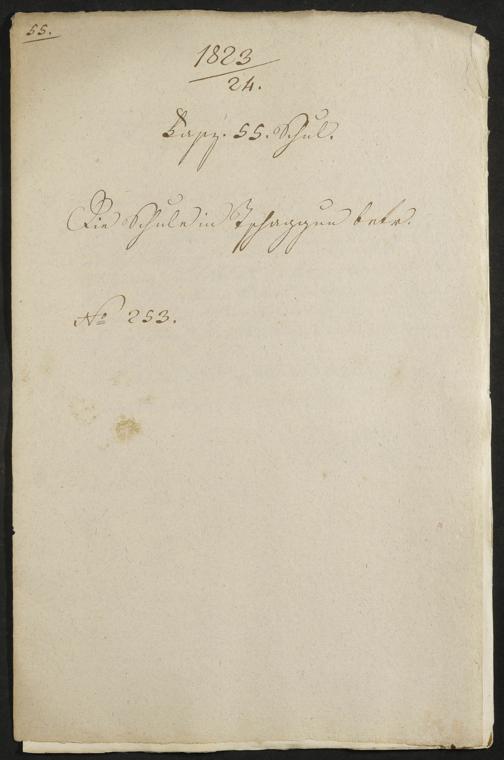 55.
1823
24.
Fasz. 55. Schul.
Die Schule in Tschaggun betr.
No 253.